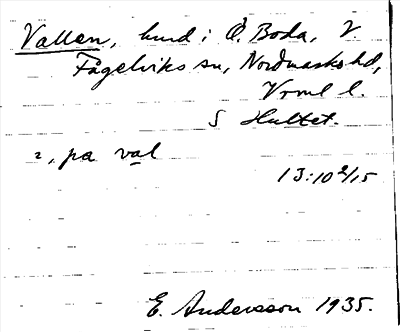 Vallen, hmd i Ö. Boda, V.
Fågelviks sn, Nordmarks hd,
Vrml l.
S Hultet.
2, pa val
13:10 2/15
E. Andersson 1935.